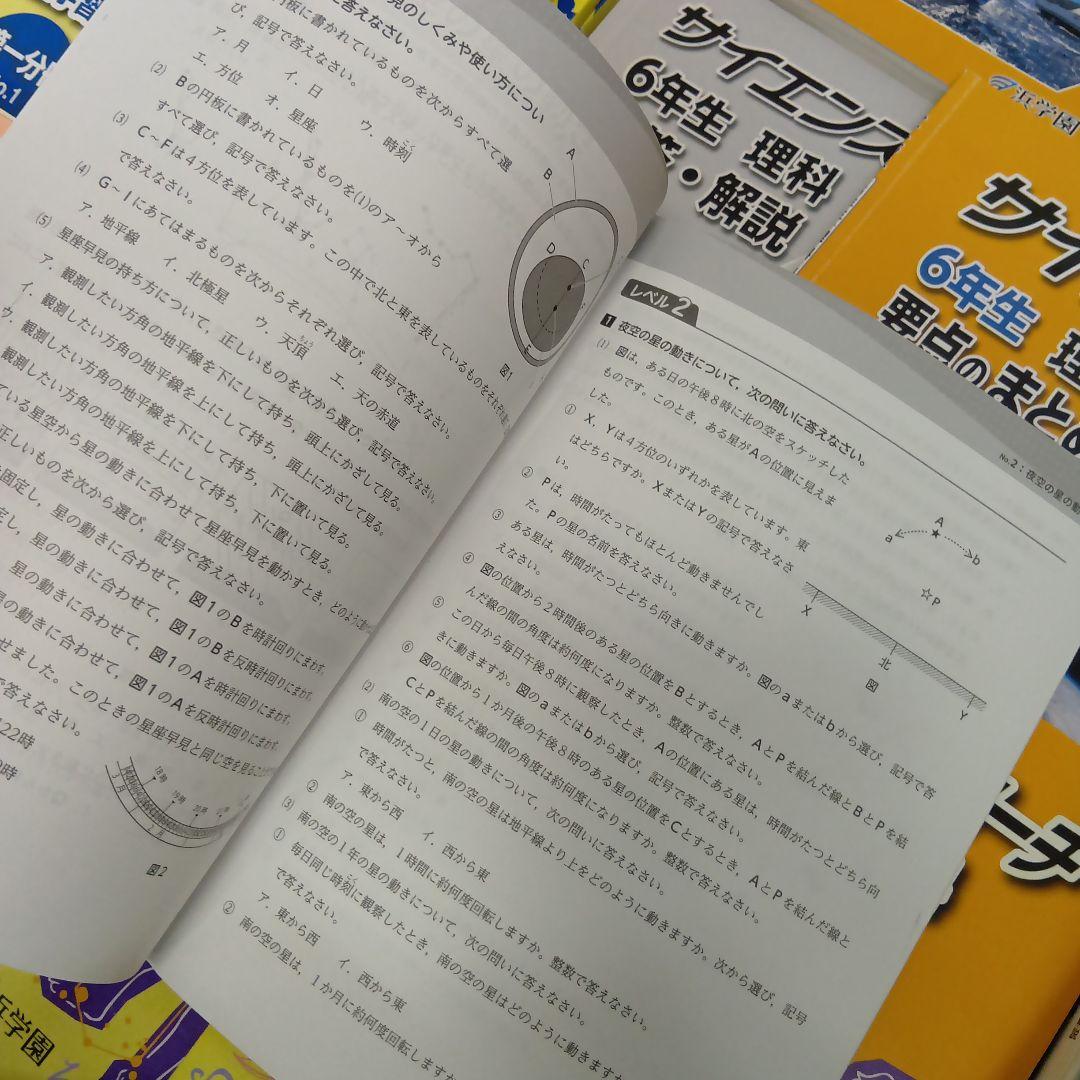 見のしくみや使い方につい
答えなさい。
円板に書かれているものを次からすべて選
び，記号で答えなさい。
ア．月　イ．日　ウ．時刻
エ．方位　オ．星座
(2) Bの円板に書かれているものを(1)のア～オから
すべて選び，記号で答えなさい。
(3) C～Fは4方位を表しています。この中で北と東を表しているものをそれぞれ
で答えなさい。
(4) G～Iにあてはまるものを次からそれぞれ選び，記号で答えなさい。
ア．地平線　イ．北極星　ウ．天頂　エ．天の赤道
(5) 星座早見の持ち方について，正しいものを次から選び，記号で答えなさい。
ア．観測したい方角の地平線を下にして持ち，頭上にかざして見る。
イ．観測したい方角の地平線を上にして持ち，頭上にかざして見る。
ウ．観測したい方角の地平線を下にして持ち，下に置いて見る。
観測したい方角の地平線を上にして持ち，下に置いて見る。
ている星空から星の動きに合わせて星座早見を動かすとき，どのように
正しいものを次から選び，記号で答えなさい。
固定し，星の動きに合わせて，図1のBを時計回りにまわす。
定し，星の動きに合わせて，図1のBを反時計回りにまわす。
星の動きに合わせて，図1のAを時計回りにまわす。
の動きに合わせて，図1のAを反時計回りにまわす。
せました。このときの星座早見と同じ空を見ること
で答えなさい。
22時
A
B
C
D
E
図1
18時
19時
図2
レベル2
No.2：夜空の星の動
1 夜空の星の動きについて，次の問いに答えなさい。
(1) 図は，ある日の午後8時に北の空をスケッチした
ものです。このとき，ある星がAの位置に見えま
した。
① X，Yは4方位のいずれかを表しています。東
はどちらですか。XまたはYの記号で答えなさ
い。
② Pは，時間がたってもほとんど動きませんでし
た。Pの星の名前を答えなさい。
③ ある星は，時間がたつとどちら向きに動きますか。図のaまたはbから選び，記号で答
えなさい。
④ 図の位置から2時間後のある星の位置をBとするとき，AとPを結んだ線とBとPを結
んだ線の間の角度は約何度になりますか。整数で答えなさい。
⑤ この日から毎日午後8時に観察したとき，Aの位置にある星は，時間がたつとどちら向
きに動きますか。図のaまたはbから選び，記号で答えなさい。
⑥ 図の位置から1か月後の午後8時のある星の位置をCとするとき，AとPを結んだ線と
CとPを結んだ線の間の角度は約何度になりますか。整数で答えなさい。
(2) 南の空の1日の星の動きについて，次の問いに答えなさい。
① 時間がたつと，南の空の星は地平線より上をどのように動きますか。次から選び，記号
で答えなさい。
ア．東から西　イ．西から東
② 南の空の星は，1時間に約何度回転しますか。整数で答えなさい。
(3) 南の空の1年の星の動きについて，次の問いに答えなさい。
① 毎日同じ時刻に観察したとき，南の空の星はどのように動きますか
で答えなさい。
ア．東から西　イ．西から東
② 南の空の星は，1か月に約何度回転しますか
A
a
b
P
X
北
図
Y
サイエンス
6年生 理科
・解説
浜学園
サイ
6年生 理
要点のまとめ
浜学園